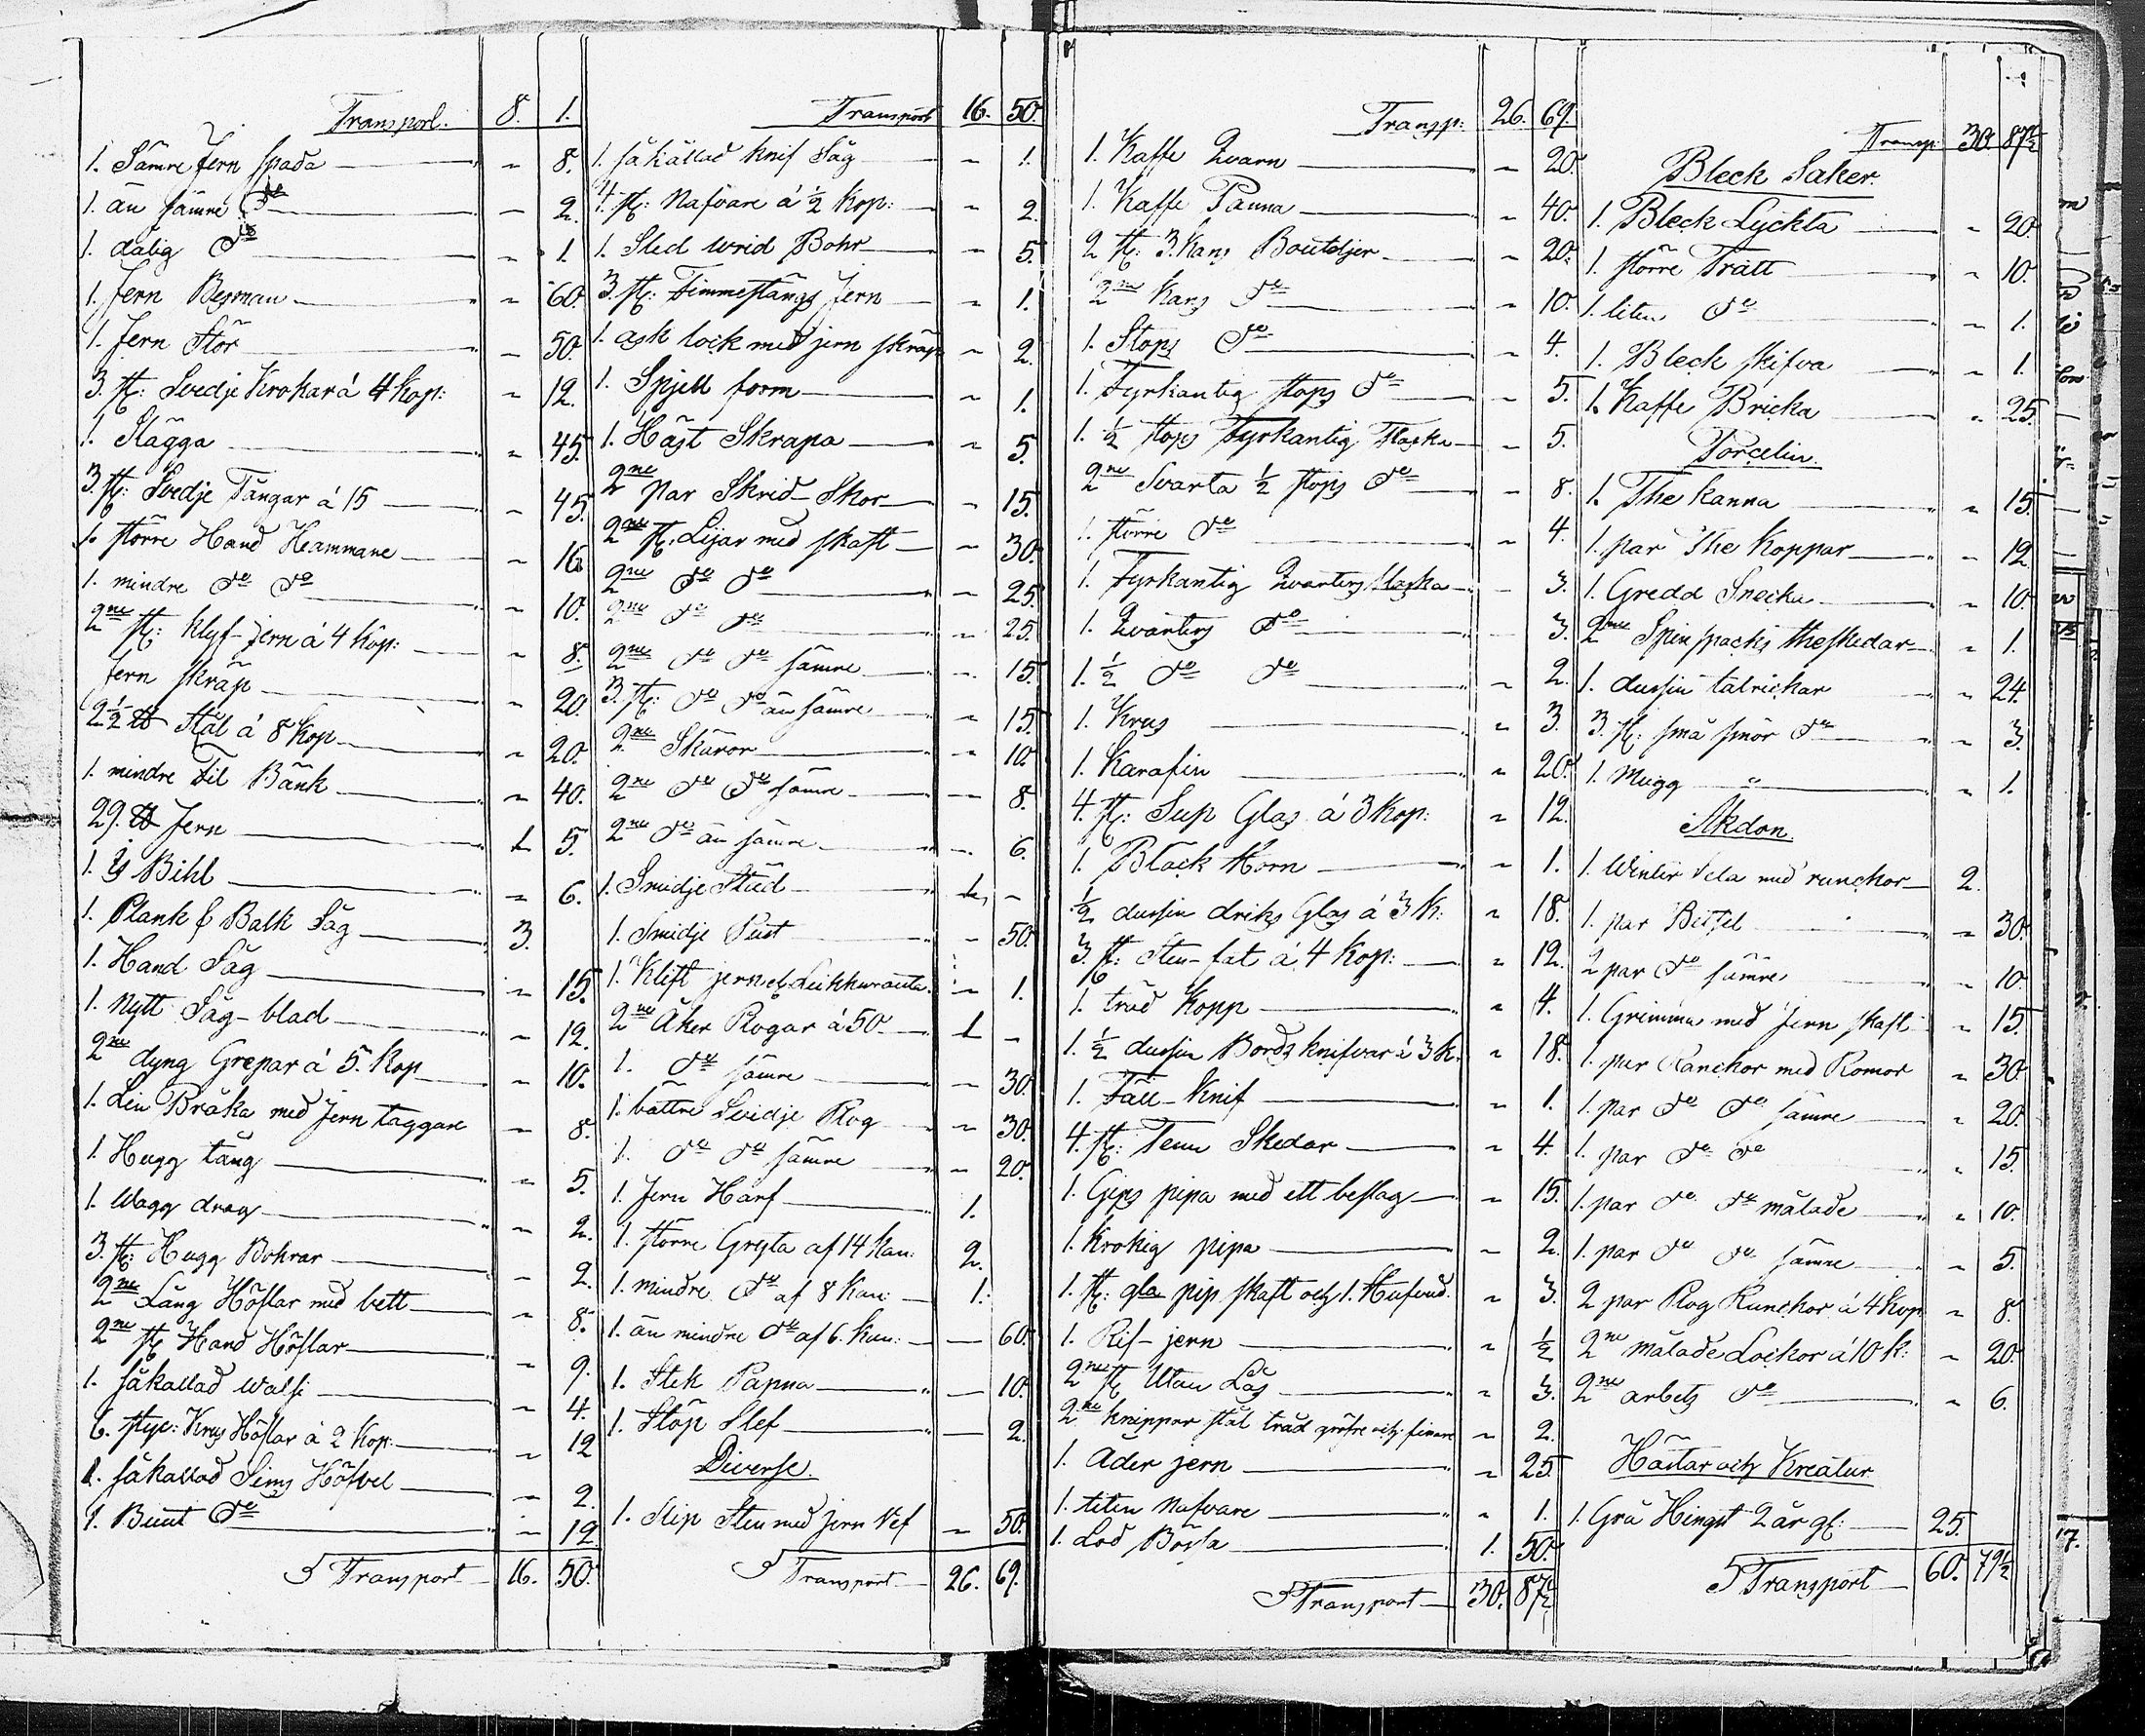 Transport. 8. 1.
1. Sämre Jern Spada " 8.
1. än sämre do " 2.
1. dålig do " 1.
1. Jern Besman " 60.
1. Jern Stör " 50.
3. st: Svedje Krokar á 4 kop: " 12.
1. Slägga " 45.
3. st: Svedje Tänger á 15 " 45.
1. större Hand Hammare " 16
1. mindre do do " 10.
2ne st: Klyf-Jern á 4 kop: " 8.
Jern skräp " 20.
2½ ℔ Stål á 8 kop " 20.
1. mindre Fil Bänk " 40.
29. ℔ Jern 1 5.
1. Is Bihl " 6.
1. Plank & Balk Såg 3.
1. Hand Såg " 15.
1. Nytt Såg-blad " 12.
2ne dyng Grepar á 5. Kop " 10.
1. Lin Bråka med Jern taggar " 8.
1. Hugg tång " 5.
1. Wagg drag " 2.
3. st: Hugg Bohrar " 2.
2ne Lång Höflar med bett " 8.
2ne st Hand Höflar " 9.
1. såkallad Walsi " 4.
6. styc: Krus Höflar á 2 Kop: " 12
1. såkallad Sims Höfvel " 2.
1. Bunt do " 12
Transport 16. 50.
Transport 16. 50.
1. såkallad Knif Såg " 1.
4. st: Nafvare á ½ Kop: " 2.
1. Sled wrid Bohr " 5.
3. st: Timmestångs Jern " 1.
1. ask lock med jern skräp " 2.
1. Spjell form " 1.
1. Häst Skrapa " 5.
2ne par Skrid-Skor " 15.
2ne st. Lijar med skaft " 30.
2ne do do " 25.
2ne do do " 25.
2ne do do sämre " 15.
3. st: do do än sämre " 15.
2ne Skäror " 10.
2ne do do sämre " 8.
2ne do än sämre " 6.
1. Smidje Städ 1 "
1. Smidje Pust " 50.
1. Klift jern " 1.
2ne Åker Plogar á 50 1 "
1. do sämre " 30.
1. bättre Svidje Plog " 30.
1. do do sämre " 20.
1. Jern Harf 1.
1. större Gryta af 14 Kan: 2.
1. mindre do af 8 Kan: 1.
1. än mindre do af 6. Kan: " 60.
1. Stek Panna " 10.
1. Stöp Slef " 2.
Diverse.
1. Slip Sten med jern Vef " 50.
Transport 26. 69.
Transp: 26. 69.
1. Kaffe Qvarn " 20.
1. Kaffe Panna " 40.
2 st: 3. Kans Bouteljer " 20.
2ne Kans do " 10.
1. Stops do " 4.
1. Fyrkantig stops do " 5.
1. ½ stops Fyrkantig Flaska " 5.
2ne Svarta ½ stops do " 8.
1. större do " 4.
1. Fyrkantig Qvarters flaska " 3.
1. Qvarters do 3.
1. ½ do do " 2.
1. Krus " 3.
1. Karafin " 20.
4. st: Sup Glas á 3 Kop: " 12.
1. Bläck Horn " 1.
½ dussin driks Glas á 3 K: " 18.
3. st: Sten-fat á 4 Kop: " 12.
1. träd Kopp " 4.
1. ½ dussin Bords knifvar á 3 k. " 18.
1. Fäll-Knif " 1.
4. st: Tenn Skedar " 4.
1. Gips pipa med ett beslag " 15.
1. Krokig pipa " 2.
1. st: gla pip skaft och 1. Hufvud. " 3.
1. Rif-jern " ½
2ne st Utan Lås " 3.
2ne knippor stål tråd gröfre och finare " 2.
1. Åder jern " 25.
1. liten Nafvare " 1.
1. Lod Bössa 1. 50.
Transport 30. 87½
Transp: 30. 87½
Bleck Saker.
1. Bleck Lyckta " 20
1. större Tratt " 10.
1. liten do " 1.
1. Bleck skifva " 1.
1. Kaffe Bricka " 25.
Porcelin.
1. The kanna " 15.
1. par The Koppar " 12
1. Gredd Snecka " 10.
2ne theskedar " 1.
1. dussin talrickar " 24.
3. st: små smör do " 3.
1. Mugg " 1.
Åkdon.
1. Winter Sela med runckor 2.
1. par Bettsel " 30.
2 par do sämre " 10.
1. Grimma med Jern skaft " 15.
1. par Ranckor med Romor " 30.
1. par do do sämre " 20.
1. par do do " 15.
1. par do do målade " 10.
1. par do do sämre " 5.
2 par Plog Runckor á 4 Kop " 8.
2ne målade Lockor á 10 k: " 20.
2ne arbets do " 6.
Hästar och Kreatur
1. Grå Hingst 2 år gl: 25.
Transport 60. 79½
17.